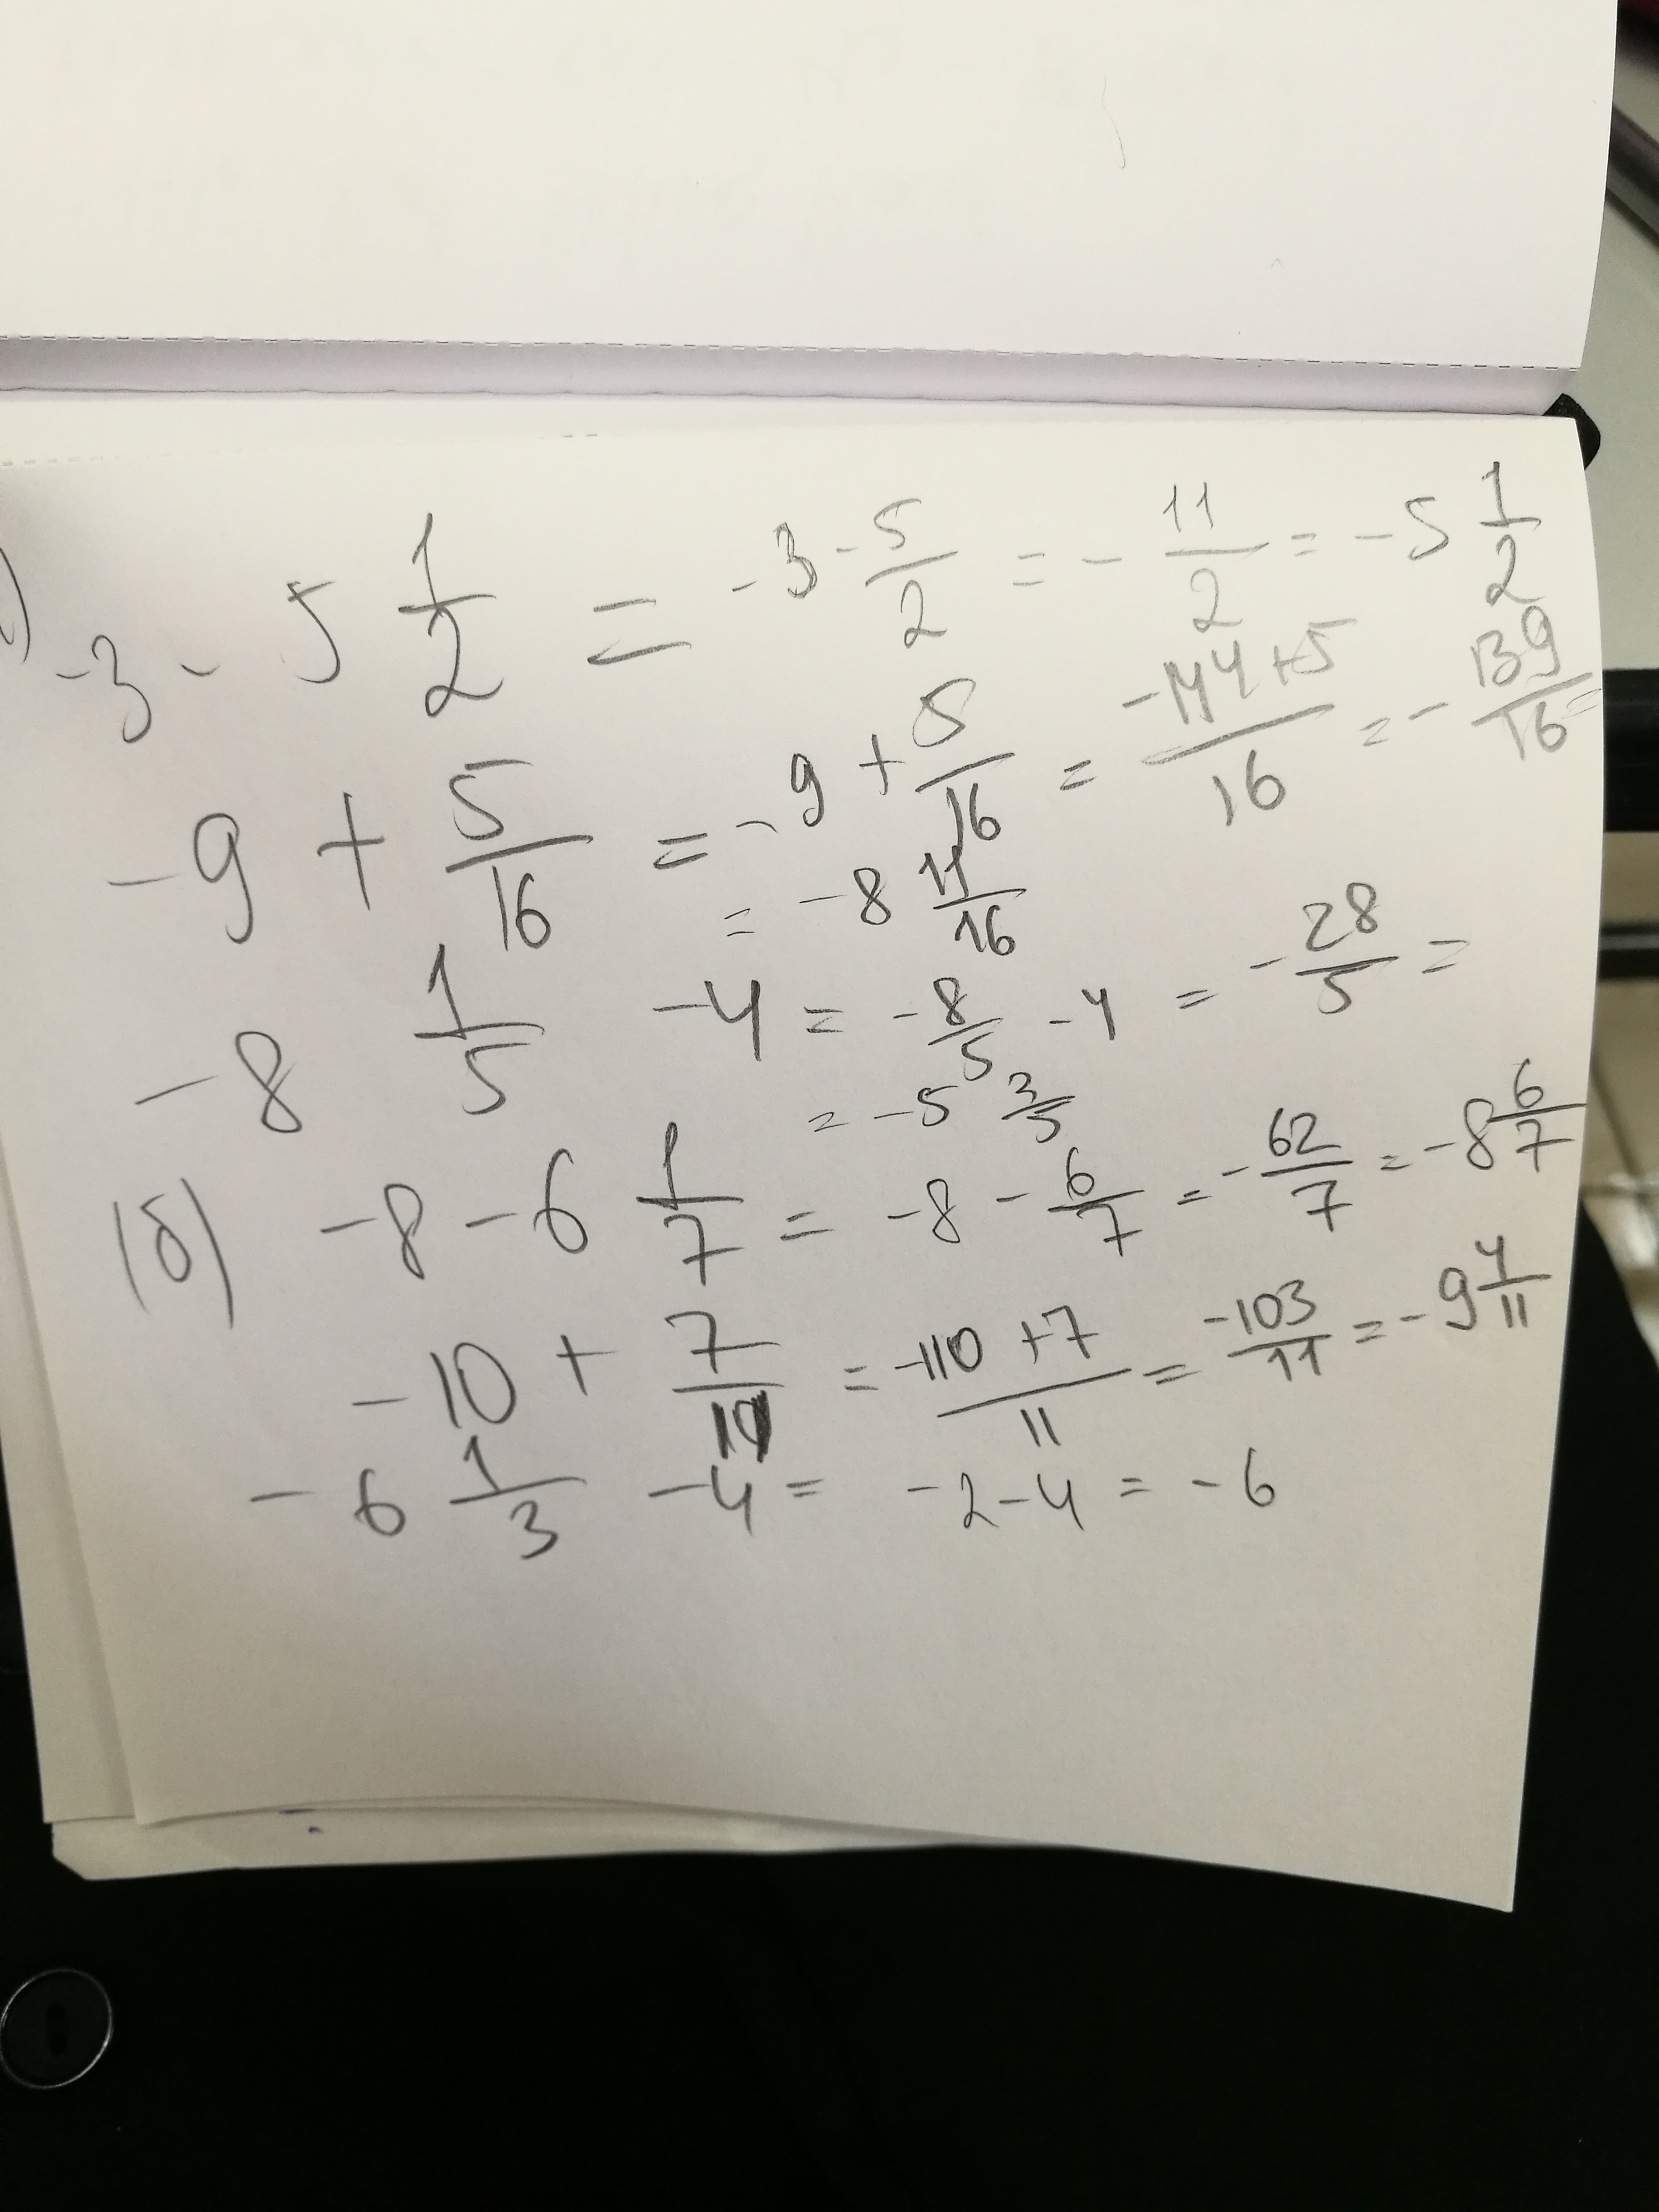 ) -3 - 5 1/2 = -3 - 5/2 = - 11/2 = -5 1/2
-9 + 5/16 = -9 + 5/16 = -144+5/16 = - 139/16 =
= -8 11/16
-8 1/5 -4 = -8/5 -4 = -28/5 =
= -5 3/5
(б) -8 -6 1/7 = -8 - 6/7 = -62/7 = -8 6/7
-10 + 7/11 = -110 +7/11 = -103/11 = -9 4/11
-6 1/3 -4 = -2-4 = -6